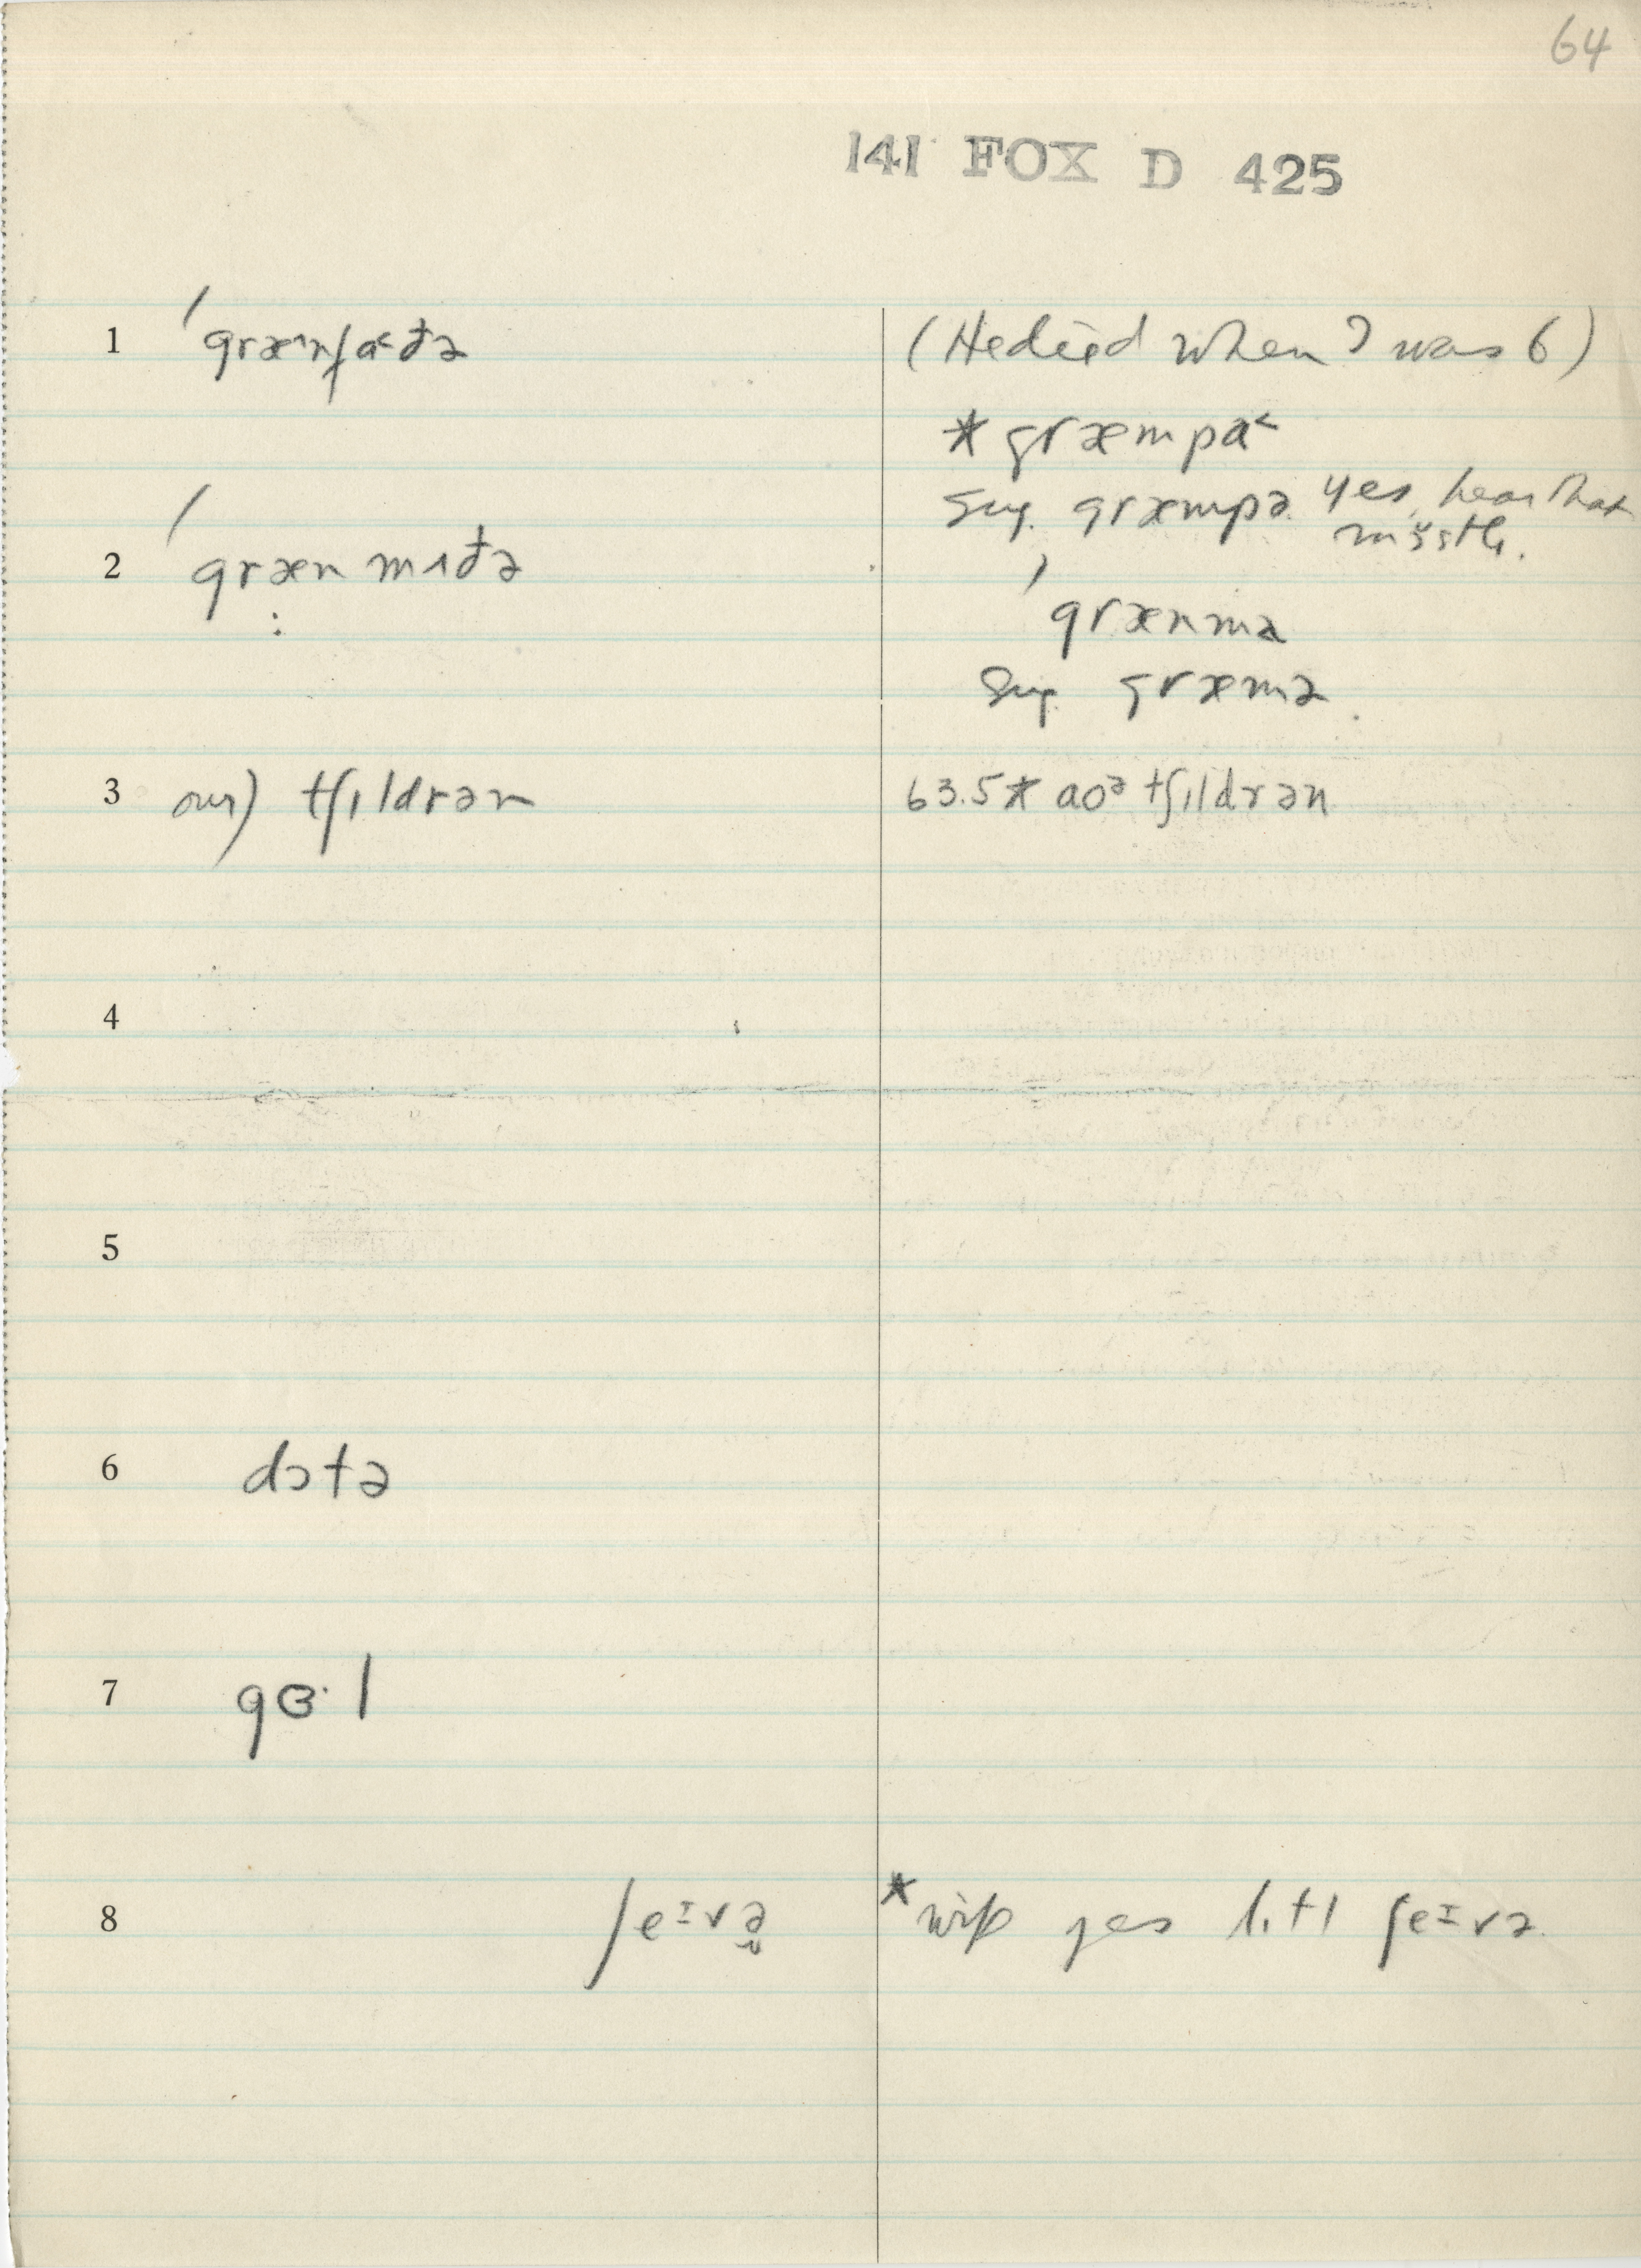 64
141 FOX D 425
1 ˈgrænfa˂ðə (He died when I was 6)
* græmpa˂
Sug. græmpə yes, hear that
mostly.
2 ˈgræn mʌðə
ˈgrænma
Sug. græmə
3 our) tʃɪldrən 63.5* aoᵊ tʃɪldrən
4
5
6 dɔtə
7 gɜ·l
8 feɪvə * wife yes lɪtl feɪvə